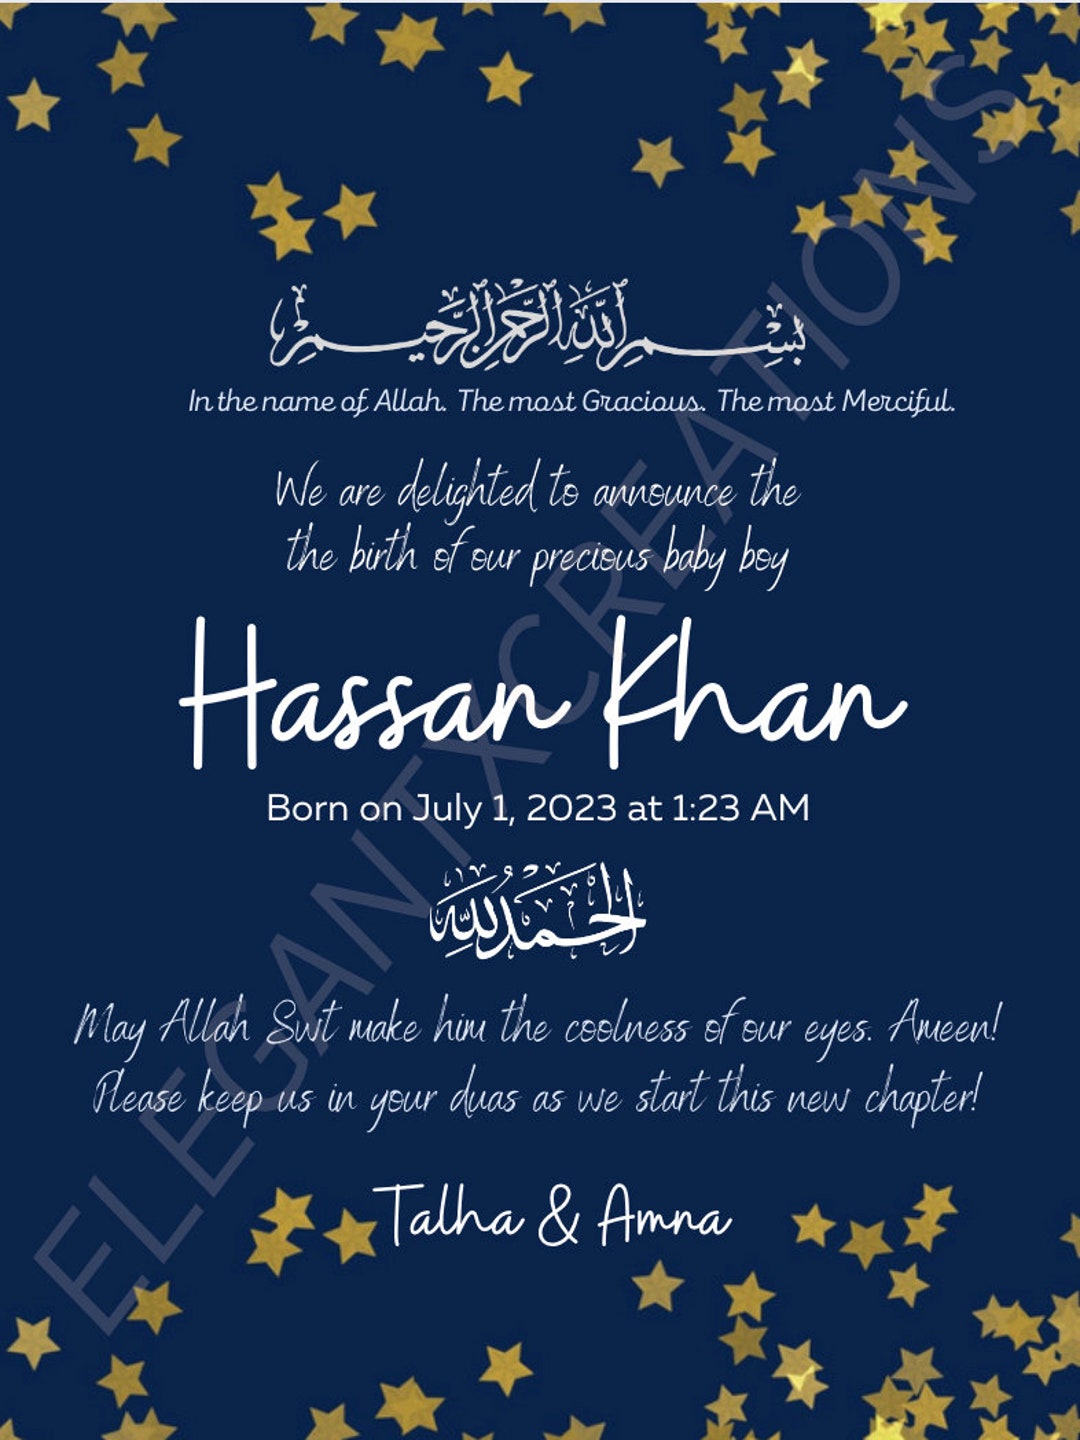 بِسْمِ اللَّهِ الرَّحْمَٰنِ الرَّحِيمِ
In the name of Allah. The most Gracious. The most Merciful.
We are delighted to announce the
the birth of our precious baby boy
Hassan Khan
Born on July 1, 2023 at 1:23 AM
الْحَمْدُ لِلَّهِ
May Allah Swt make him the coolness of our eyes. Ameen!
Please keep us in your duas as we start this new chapter!
Talha & Amna
ELEGANTXCREATIONS